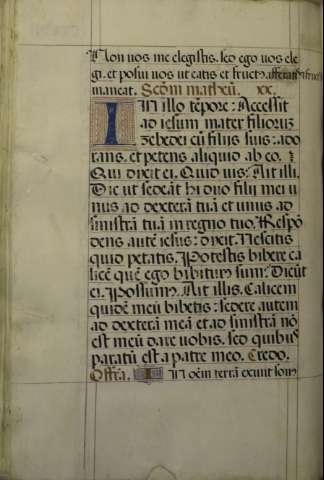 Non vos me elegistis. sed ego vos ele
gi. et posui vos ut eatis et fructũ afferatis ⁊ fruct
maneat. Scďm matheũ. xx.
IN illo tẽpore: Accessit
ad iesum mater filiorũ
zebedei cũ filijs suis: ado
rans. et petens aliquid ab eo.
Qui dixit ei. Quid vis: Ait illi.
Dic ut sedeãt hi duo filij mei u
nus ad dexterã tuã et unus ad
sinistrã tuã in regno tuo. Respõ
dens autẽ iesus: dixit. Nescitis
quid petatis. Potestis bibere ca
licẽ quẽ ego bibiturus sum: Dicũt
ei. Possumus. Ait illis. Calicem
quidẽ meũ bibetis: sedere autem
ad dexterã meã et ad sinistrã nõ
est meũ dare vobis. sed quibus
paratũ est a patre meo. Credo.
Offrã. IN oẽm terrã exivit son